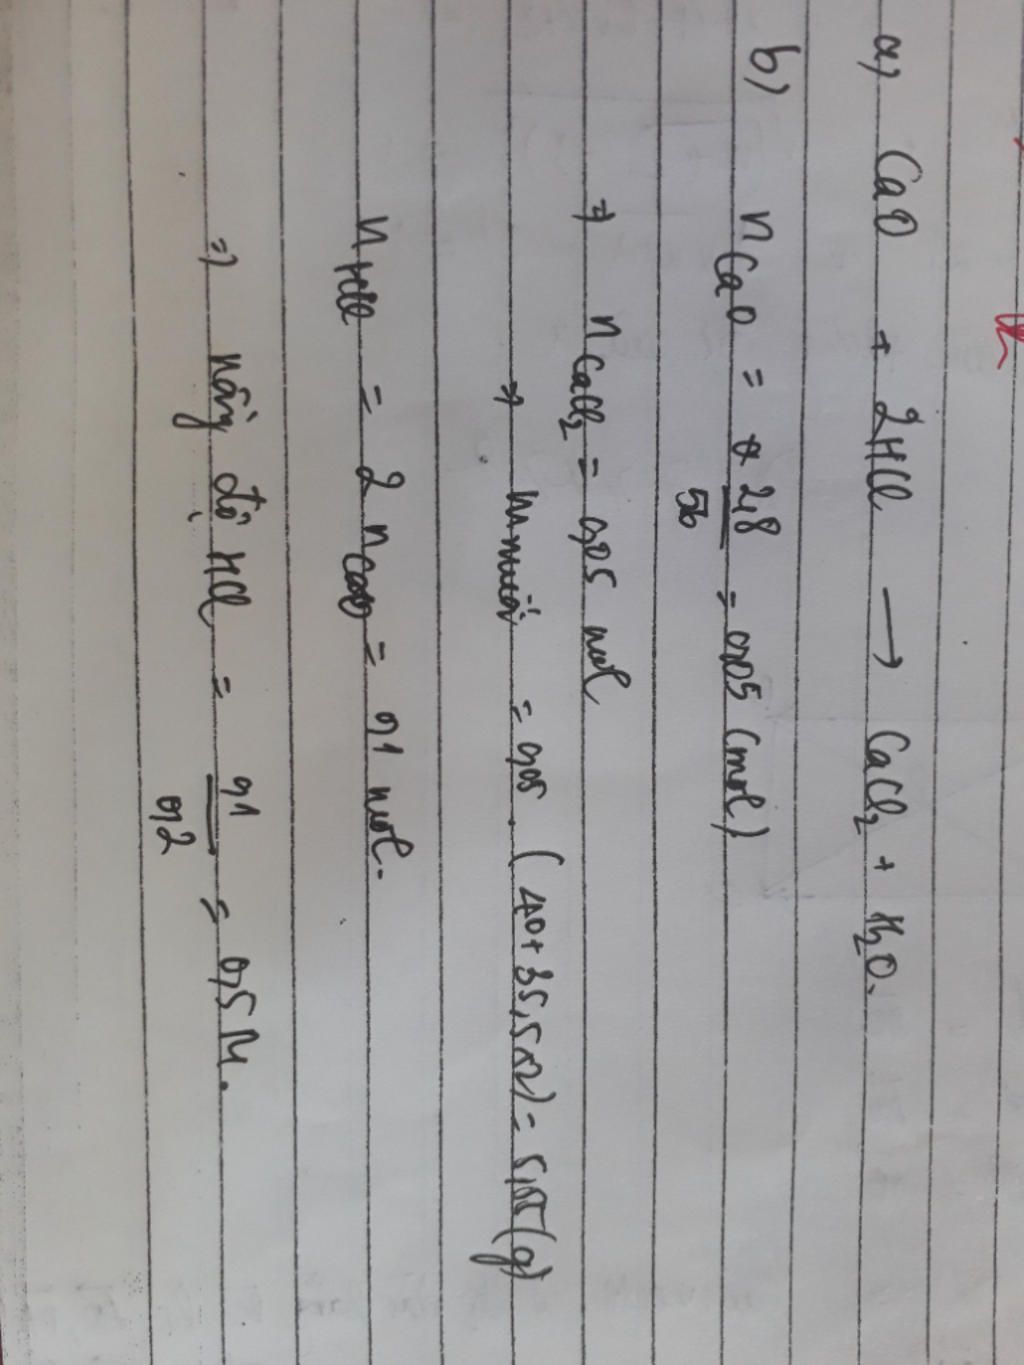 a) CaO + 2HCl → CaCl₂ + H₂O.
b) nCaO = 2,8/56 = 0,05 (mol)
⇒ nCaCl₂ = 0,05 mol
⇒ m muối = 0,05 . (40 + 35,5x2) = 5,55 (g)
nHCl = 2 nCaO = 0,1 mol.
⇒ nồng độ HCl = 0,1/0,2 = 0,5 M.